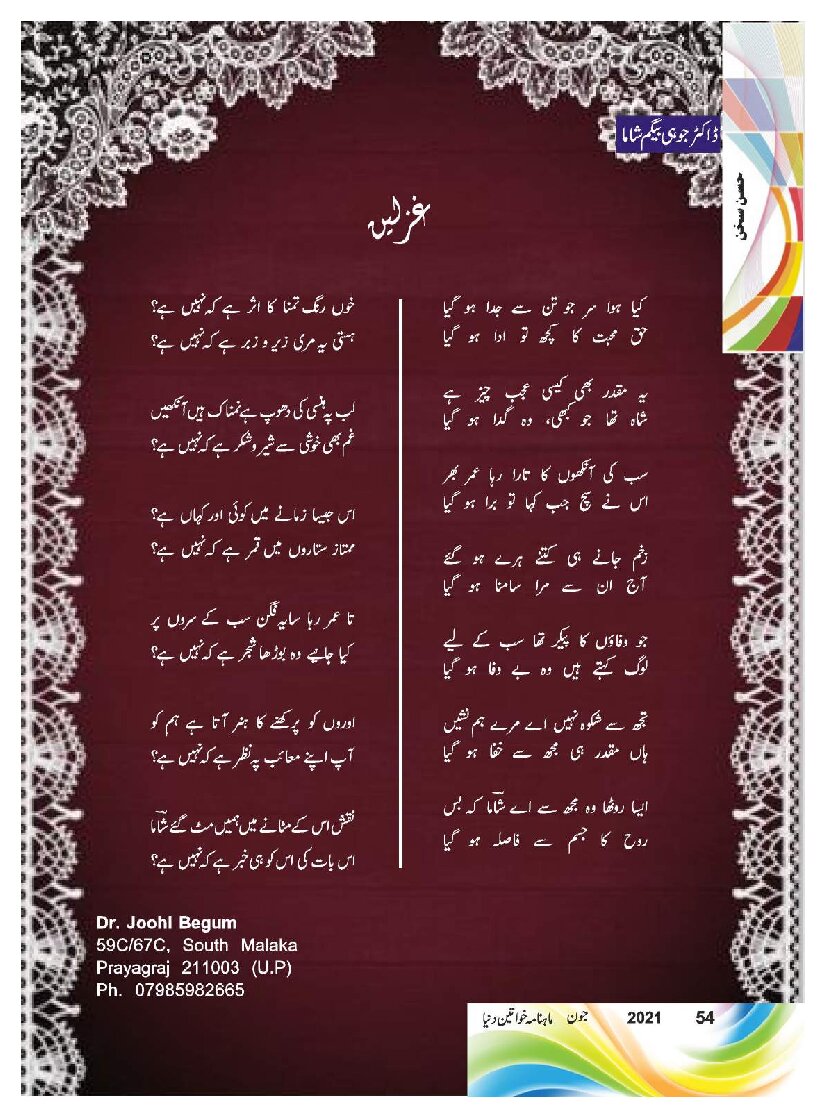 ڈاکٹر جوہی بیگم شاما
حسن سخن
غزلیں
کیا ہوا سر جو تن سے جدا ہو گیا
حق محبت کا کچھ تو ادا ہو گیا
یہ مقدر بھی کیسی عجب چیز ہے
شاہ تھا جو کبھی، وہ گدا ہو گیا
سب کی آنکھوں کا تارا رہا عمر بھر
اس نے سچ جب کہا تو برا ہو گیا
زخم جانے ہی کتنے ہرے ہو گئے
آج ان سے مرا سامنا ہو گیا
جو وفاؤں کا پیکر تھا سب کے لیے
لوگ کہتے ہیں وہ بے وفا ہو گیا
تجھ سے شکوہ نہیں اے مرے ہم نشیں
ہاں مقدر ہی مجھ سے خفا ہو گیا
ایسا روٹھا وہ مجھ سے اے شاماؔ کہ بس
روح کا جسم سے فاصلہ ہو گیا
خوں رنگ تمنا کا اثر ہے کہ نہیں ہے؟
ہستی یہ مری زیر و زبر ہے کہ نہیں ہے؟
لب پہ ہنسی کی دھوپ ہے نمناک ہیں آنکھیں
غم بھی خوشی سے شیر و شکر ہے کہ نہیں ہے؟
اس جیسا زمانے میں کوئی اور کہاں ہے؟
ممتاز ستاروں میں قمر ہے کہ نہیں ہے؟
تا عمر رہا سایہ فگن سب کے سروں پر
کیا جانیے وہ بوڑھا شجر ہے کہ نہیں ہے؟
اوروں کو پرکھنے کا ہنر آتا ہے ہم کو
آپ اپنے معائب پہ نظر ہے کہ نہیں ہے؟
نقش اس کے مٹانے میں ہمیں مٹ گئے شاماؔ
اس بات کی اس کو ہی خبر ہے کہ نہیں ہے؟
Dr. Joohi Begum
59C/67C, South Malaka
Prayagraj 211003 (U.P)
Ph. 07985982665
ماہنامہ خواتین دنیا جون 2021 54